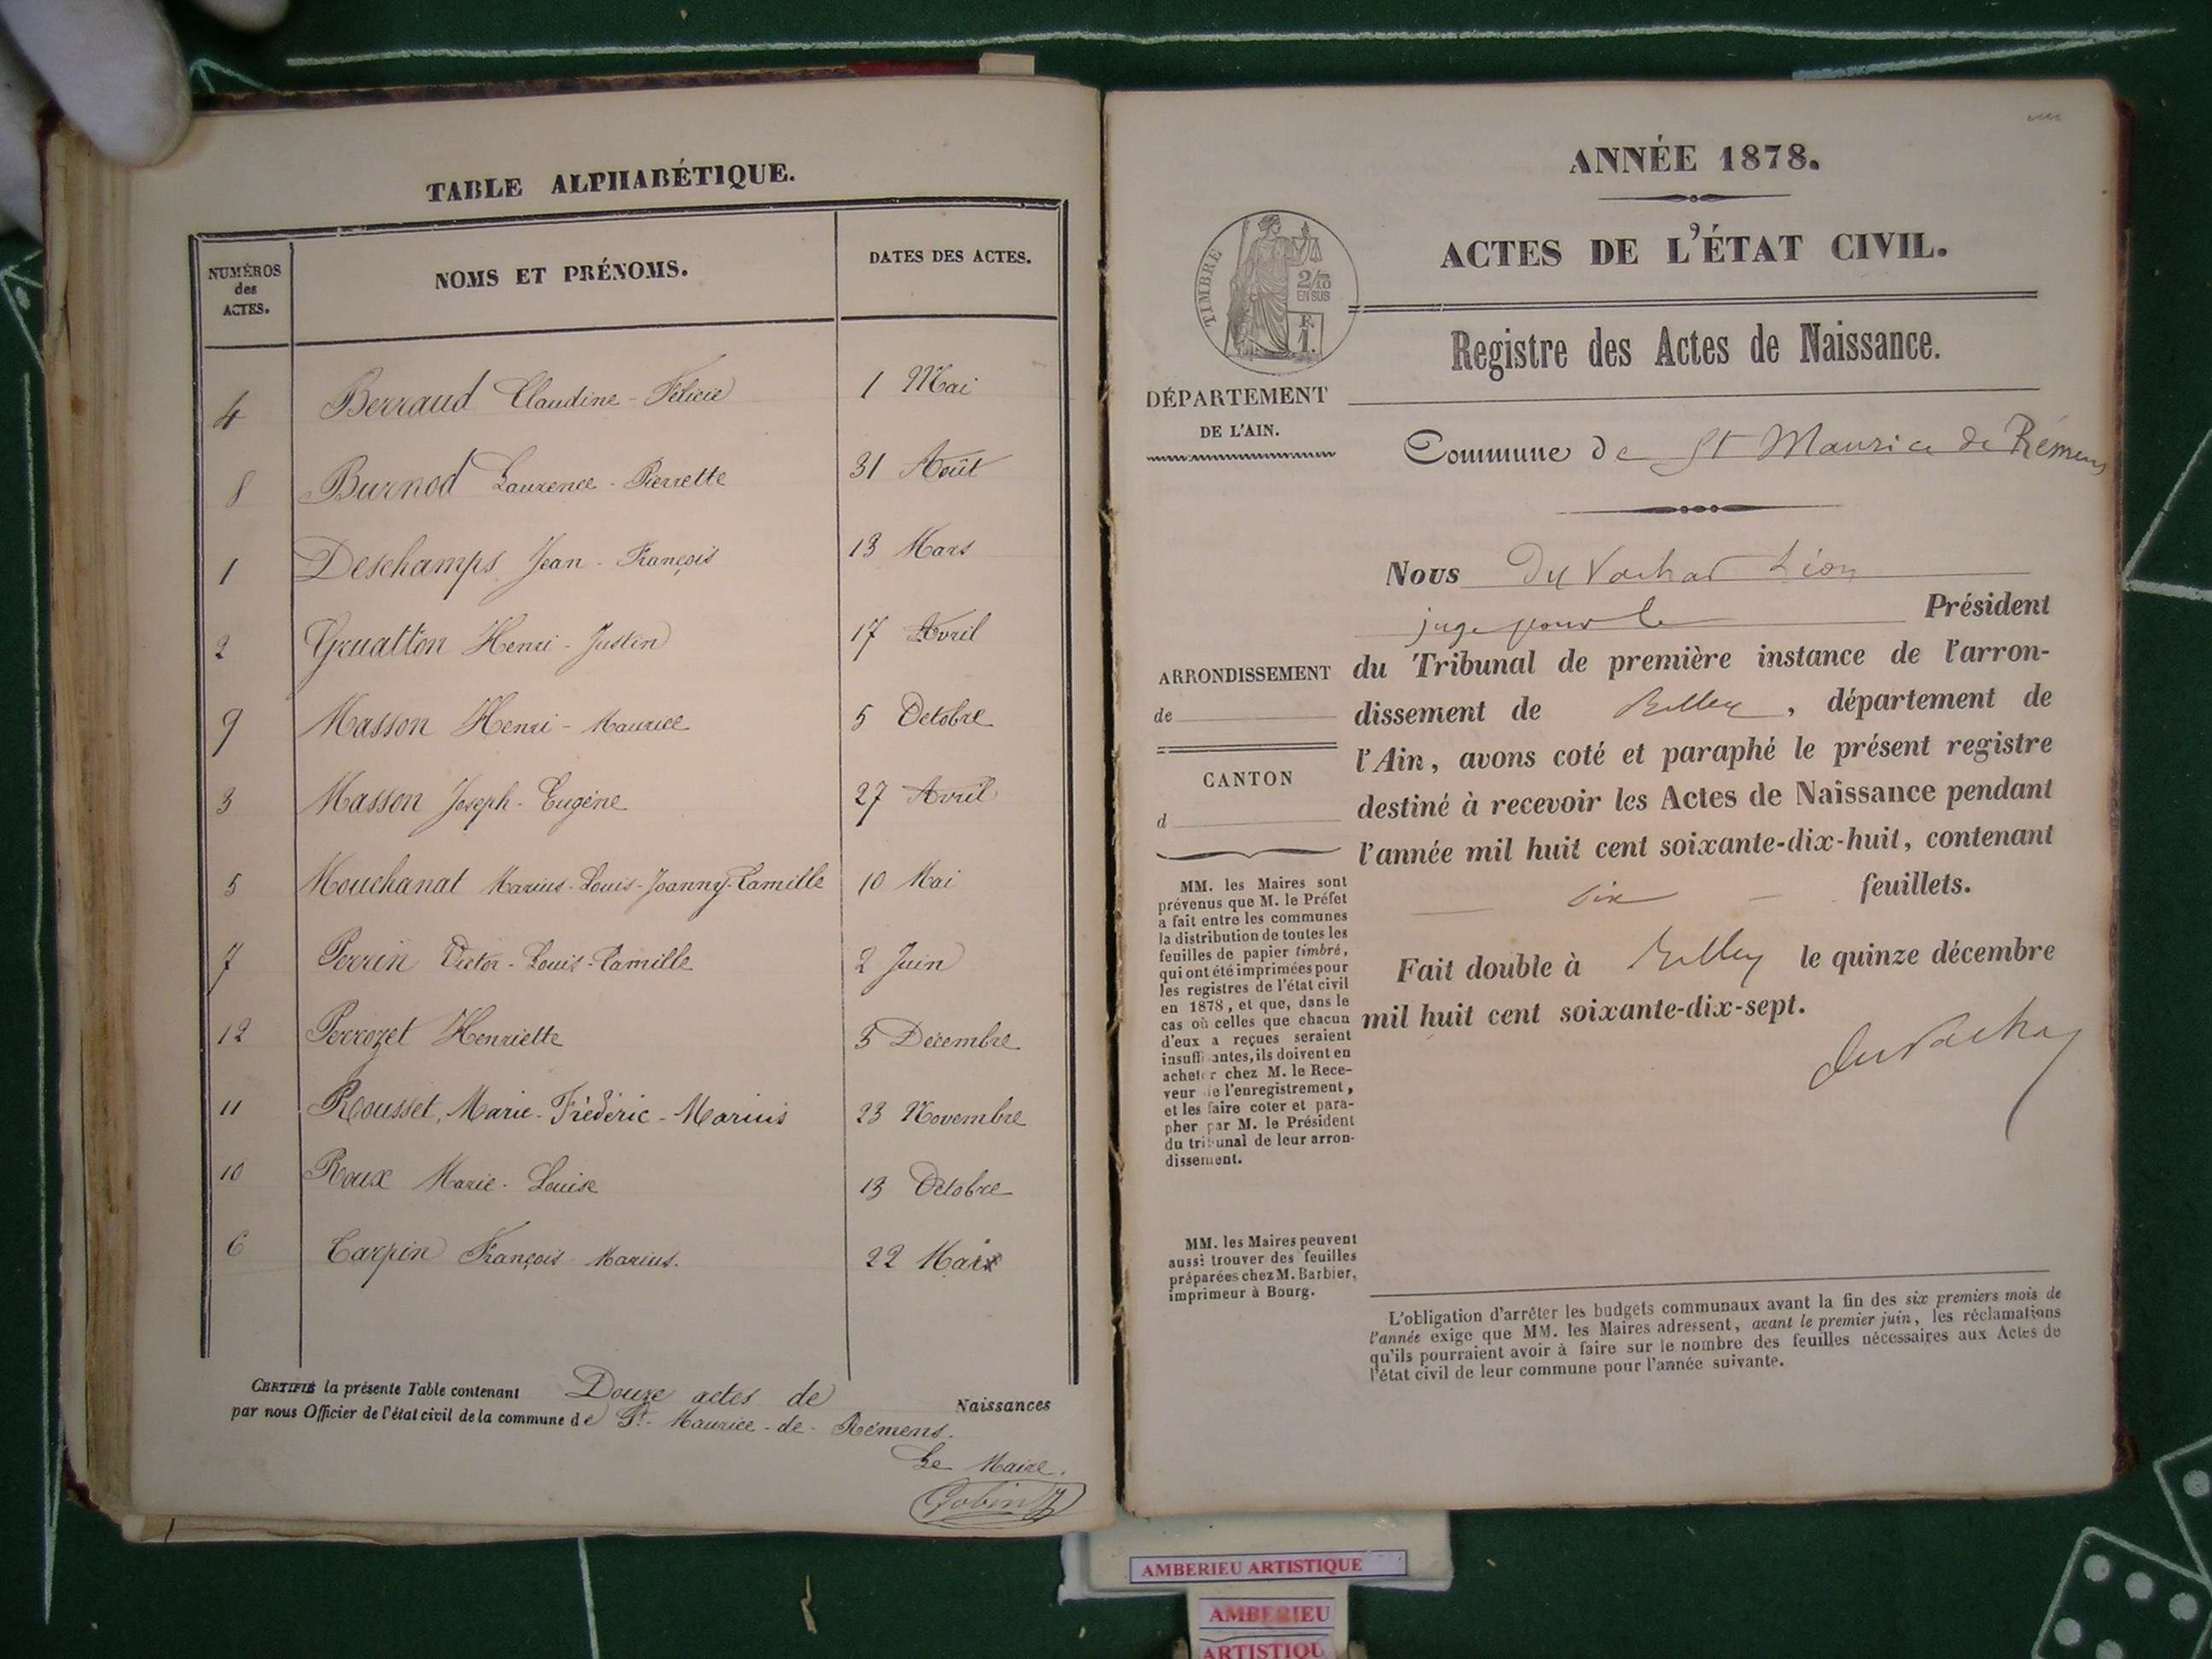 TABLE ALPHABÉTIQUE.
NUMÉROS des ACTES. NOMS ET PRÉNOMS. DATES DES ACTES.
4 Berraud Claudine - Félicie 1 Mai
8 Burnod Laurence - Pierrette 31 Août
1 Deschamps Jean - François 13 Mars
2 Gruatton Henri - Justin 17 Avril
9 Masson Henri - Maurice 5 Octobre
3 Masson Joseph - Eugène 27 Avril
5 Mouchanat Marius - Louis - Joanny - Camille 10 Mai
7 Perrin Victor - Louis - Camille 2 Juin
12 Perrozet Henriette 5 Décembre
11 Rousset, Marie - Frédéric - Marius 23 Novembre
10 Roux Marie - Louise 13 Octobre
6 Carpin François - Marius. 22 Mai
CERTIFIÉ la présente Table contenant Douze actes de Naissances
par nous Officier de l'état civil de la commune de St - Maurice - de - Rémens.
Le Maire,
Gobin
ANNÉE 1878.
ACTES DE L'ÉTAT CIVIL.
TIMBRE
2/10 EN SUS
F. 1.
Registre des Actes de Naissance.
DÉPARTEMENT
DE L'AIN.
Commune de St Maurice de Rémens
Nous Du Vachat Léon
juge pour le Président
du Tribunal de première instance de l'arron-
dissement de Belley, département de
l'Ain, avons coté et paraphé le présent registre
destiné à recevoir les Actes de Naissance pendant
l'année mil huit cent soixante-dix-huit, contenant
six feuillets.
Fait double à Belley le quinze décembre
mil huit cent soixante-dix-sept.
du Vachat
ARRONDISSEMENT
de
CANTON
d
MM. les Maires sont
prévenus que M. le Préfet
a fait entre les communes
la distribution de toutes les
feuilles de papier timbré,
qui ont été imprimées pour
les registres de l'état civil
en 1878, et que, dans le
cas où celles que chacun
d'eux a reçues seraient
insuffisantes, ils doivent en
acheter chez M. le Rece-
veur de l'enregistrement,
et les faire coter et para-
pher par M. le Président
du tribunal de leur arron-
dissement.
MM. les Maires peuvent
aussi trouver des feuilles
préparées chez M. Barbier,
imprimeur à Bourg.
L'obligation d'arrêter les budgets communaux avant la fin des six premiers mois de
l'année exige que MM. les Maires adressent, avant le premier juin, les réclamations
qu'ils pourraient avoir à faire sur le nombre des feuilles nécessaires aux Actes de
l'état civil de leur commune pour l'année suivante.
AMBERIEU ARTISTIQUE
AMBERIEU
ARTISTIQU